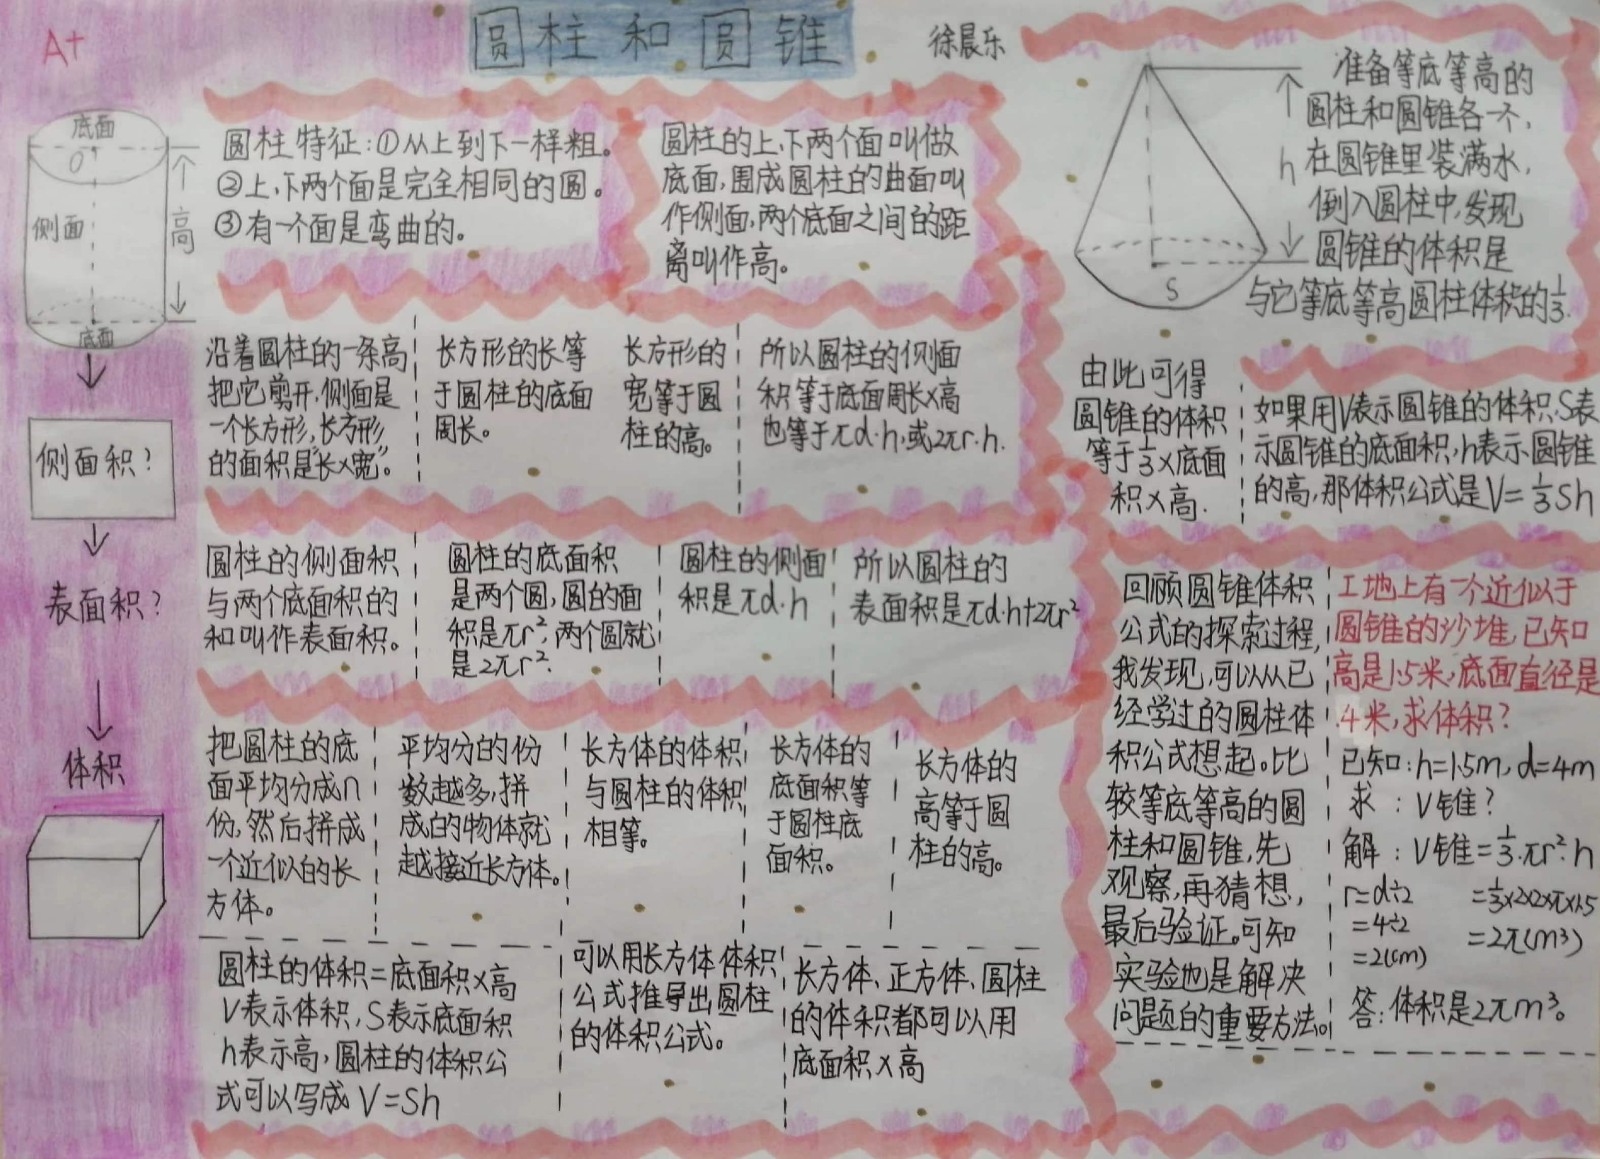 A+
圆柱和圆锥
徐晨乐
底面
O
侧面
高
底面
侧面积?
表面积?
体积
圆柱特征:①从上到下一样粗。
②上、下两个面是完全相同的圆。
③有一个面是弯曲的。
圆柱的上、下两个面叫做
底面,围成圆柱的曲面叫
作侧面,两个底面之间的距
离叫作高。
沿着圆柱的一条高
把它剪开,侧面是
一个长方形,长方形
的面积是“长×宽”。
长方形的长等
于圆柱的底面
周长。
长方形的
宽等于圆
柱的高。
所以圆柱的侧面
积等于底面周长×高
也等于πd·h,或2πr·h.
圆柱的侧面积
与两个底面积的
和叫作表面积。
圆柱的底面积
是两个圆,圆的面
积是πr²,两个圆就
是2πr².
圆柱的侧面
积是πd·h
所以圆柱的
表面积是πd·h+2πr²
把圆柱的底
面平均分成n
份,然后拼成
一个近似的长
方体。
平均分的份
数越多,拼
成的物体就
越接近长方体。
长方体的体积
与圆柱的体积
相等。
长方体的
底面积等
于圆柱底
面积。
长方体的
高等于圆
柱的高。
圆柱的体积=底面积×高
V表示体积,S表示底面积
h表示高,圆柱的体积公
式可以写成V=Sh
可以用长方体体积
公式推导出圆柱
的体积公式。
长方体、正方体、圆柱
的体积都可以用
底面积×高
h
S
准备等底等高的
圆柱和圆锥各一个,
在圆锥里装满水,
倒入圆柱中,发现
圆锥的体积是
与它等底等高圆柱体积的1/3.
由此可得
圆锥的体积
等于1/3×底面
积×高.
如果用V表示圆锥的体积,S表
示圆锥的底面积,h表示圆锥
的高,那体积公式是V=1/3Sh
回顾圆锥体积
公式的探索过程,
我发现,可以从已
经学过的圆柱体
积公式想起。比
较等底等高的圆
柱和圆锥,先
观察,再猜想,
最后验证。可知
实验也是解决
问题的重要方法。
工地上有一个近似于
圆锥的沙堆,已知
高是1.5米,底面直径是
4米,求体积?
已知:h=1.5m,d=4m
求:V锥?
解:V锥=1/3·πr²·h
r=d÷2
=4÷2
=2(cm)
=1/3×2×2×π×1.5
=2π(m³)
答:体积是2πm³。